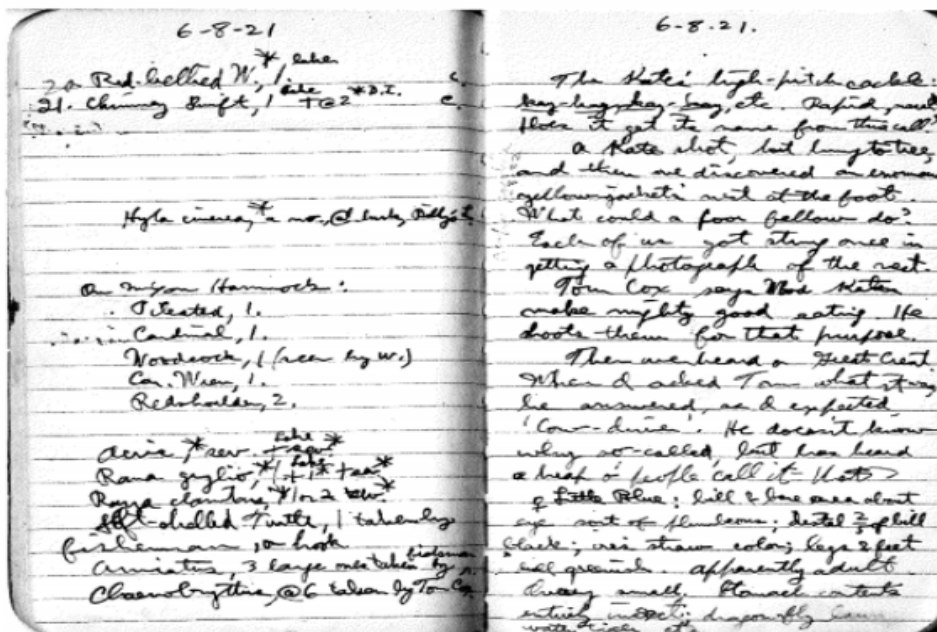 6-8-21
20 Red-bellied W.,* 1. lake
21. Chimney Swift, 1 lake + @2 *D.I. c.
Hyla cinerea,* a no., @
On Mixon Hammock:
Titested, 1.
Cardinal, 1.
Woodcock, 1 (seen by W.)
Car. Wren, 1.
Redshoulder, 2.
Acris,* sev. + sev.* lake
Rana grylio,* 1 + 1* + sev.* lake
Rana clamitans,* 1 or 2 sev.*
Soft-shelled Turtle, 1 taken by
fisherman, on hook
Amiatus, 3 large ones taken by fisherman
Chaenobryttus, @6 taken by Tom Cox
6-8-21.
The Kate's high-pitch cackle:
kay-kay, kay-kay, etc. Rapid,
Does it get its name from this call?
A Kate shot, but hung to tree,
and then we discovered an
yellow-jacket's nest at the foot.
What could a poor fellow do?
Each of us got stung once in
getting a photograph of the nest.
Tom Cox says Wood Kates
make mighty good eating. He
shoots them for that purpose.
Then we heard a Great Crest.
When I asked Tom what it was,
he answered, as I expected
'Cow-driver'. He doesn't know
why so-called, but has heard
a heap o' people call it that
♀ Little Blue: bill & bare area about
eye sort of plumbeous; distal ⅔ of bill
black; iris straw color; legs & feet
dull greenish. Apparently adult.
Ovary small. Stomach contents
entirely insects: dragonfly